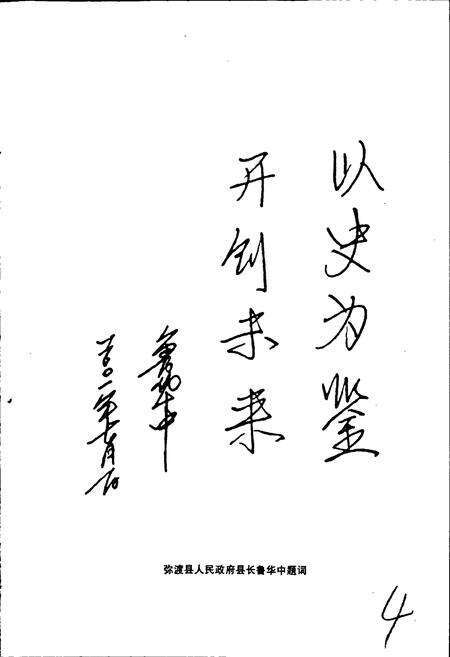 以史为鉴
开创未来
鲁华中
二〇〇一年七月一日
弥渡县人民政府县长鲁华中题词
4